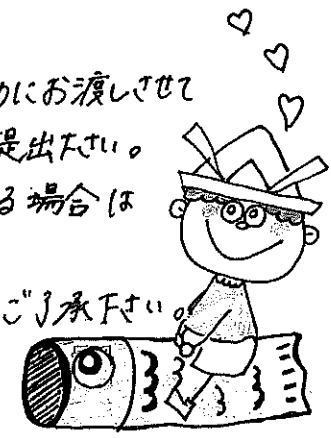 めにお渡しさせて
提出下さい。
る場合は
ご了承下さい。